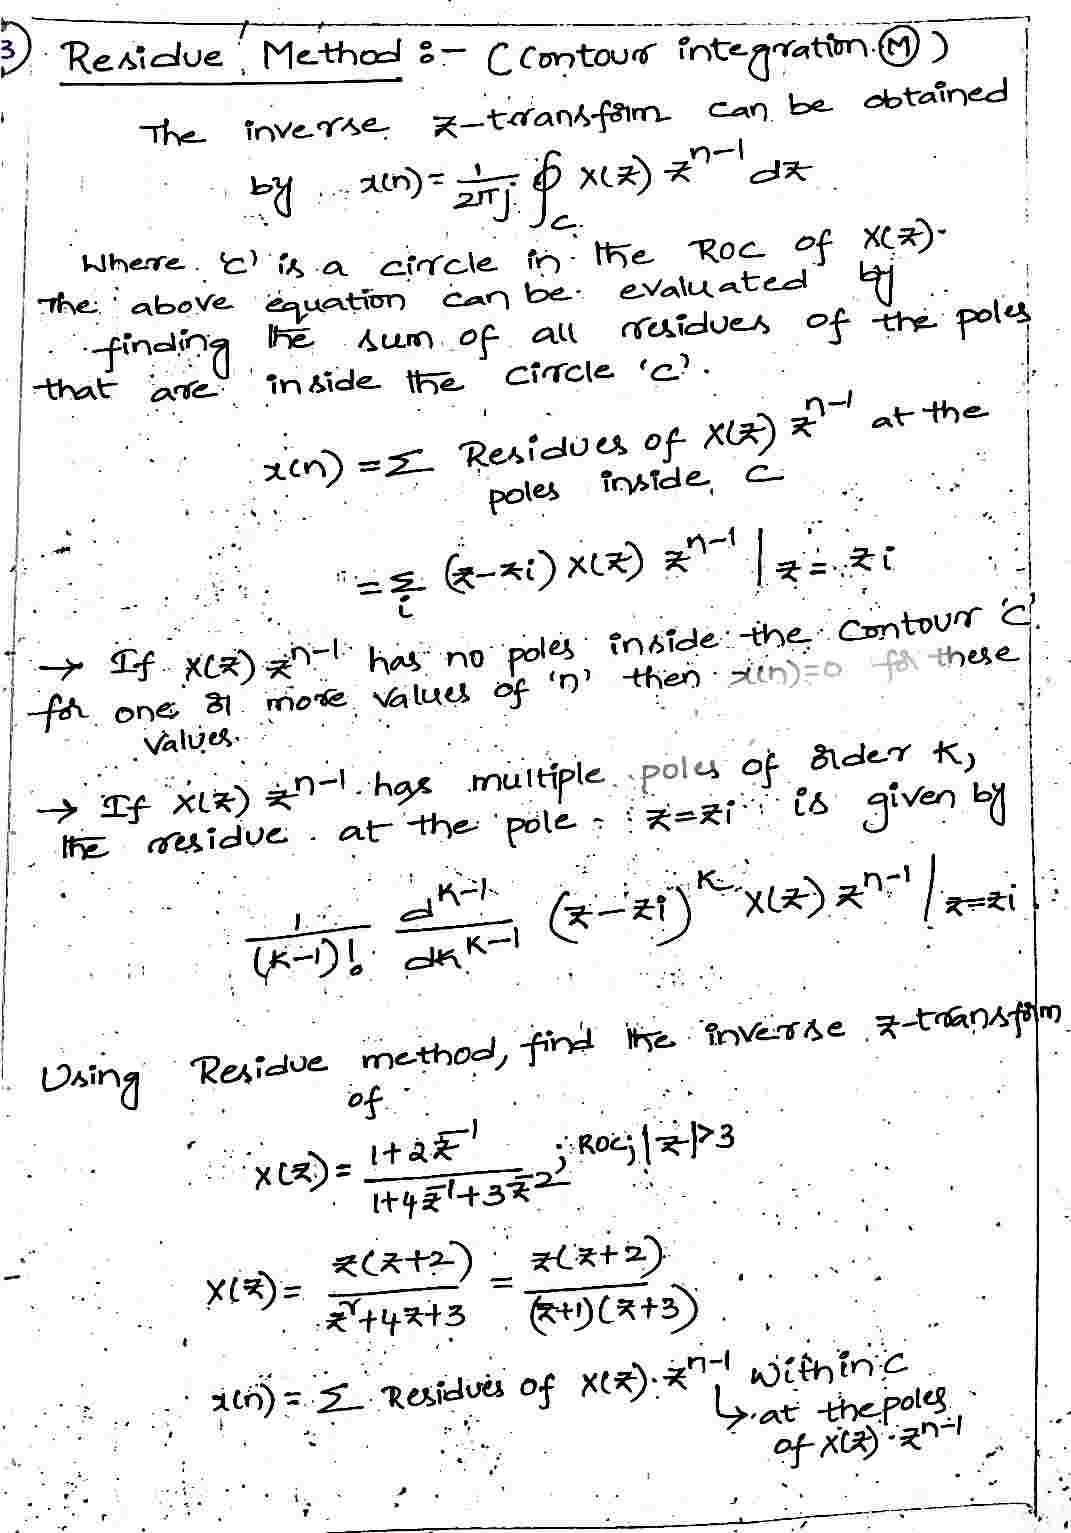 3) Residue Method :- (Contour integration (M))
The inverse z-transform can be obtained
by x(n) = 1/2πj ∮_C X(z) z^{n-1} dz
Where 'c' is a circle in the ROC of X(z).
The above equation can be evaluated by
finding the sum of all residues of the poles
that are inside the circle 'c'.
x(n) = Σ Residues of X(z) z^{n-1} at the
poles inside C
= Σ_i (z-zi) X(z) z^{n-1} | z = zi
→ If X(z) z^{n-1} has no poles inside the contour 'c'
for one or more values of 'n' then x(n)=0 for these
values.
→ If X(z) z^{n-1} has multiple poles of order K,
the residue at the pole z=zi is given by
1/(K-1)! d^{K-1}/dk^{K-1} (z-zi)^K X(z) z^{n-1} | z=zi
Using Residue method, find the inverse z-transform
of
X(z) = (1+2z^{-1})/(1+4z^{-1}+3z^{-2}) ; ROC; |z|>3
X(z) = z(z+2)/(z^2+4z+3) = z(z+2)/((z+1)(z+3))
x(n) = Σ Residues of X(z).z^{n-1} within C
↳ at the poles
of X(z).z^{n-1}